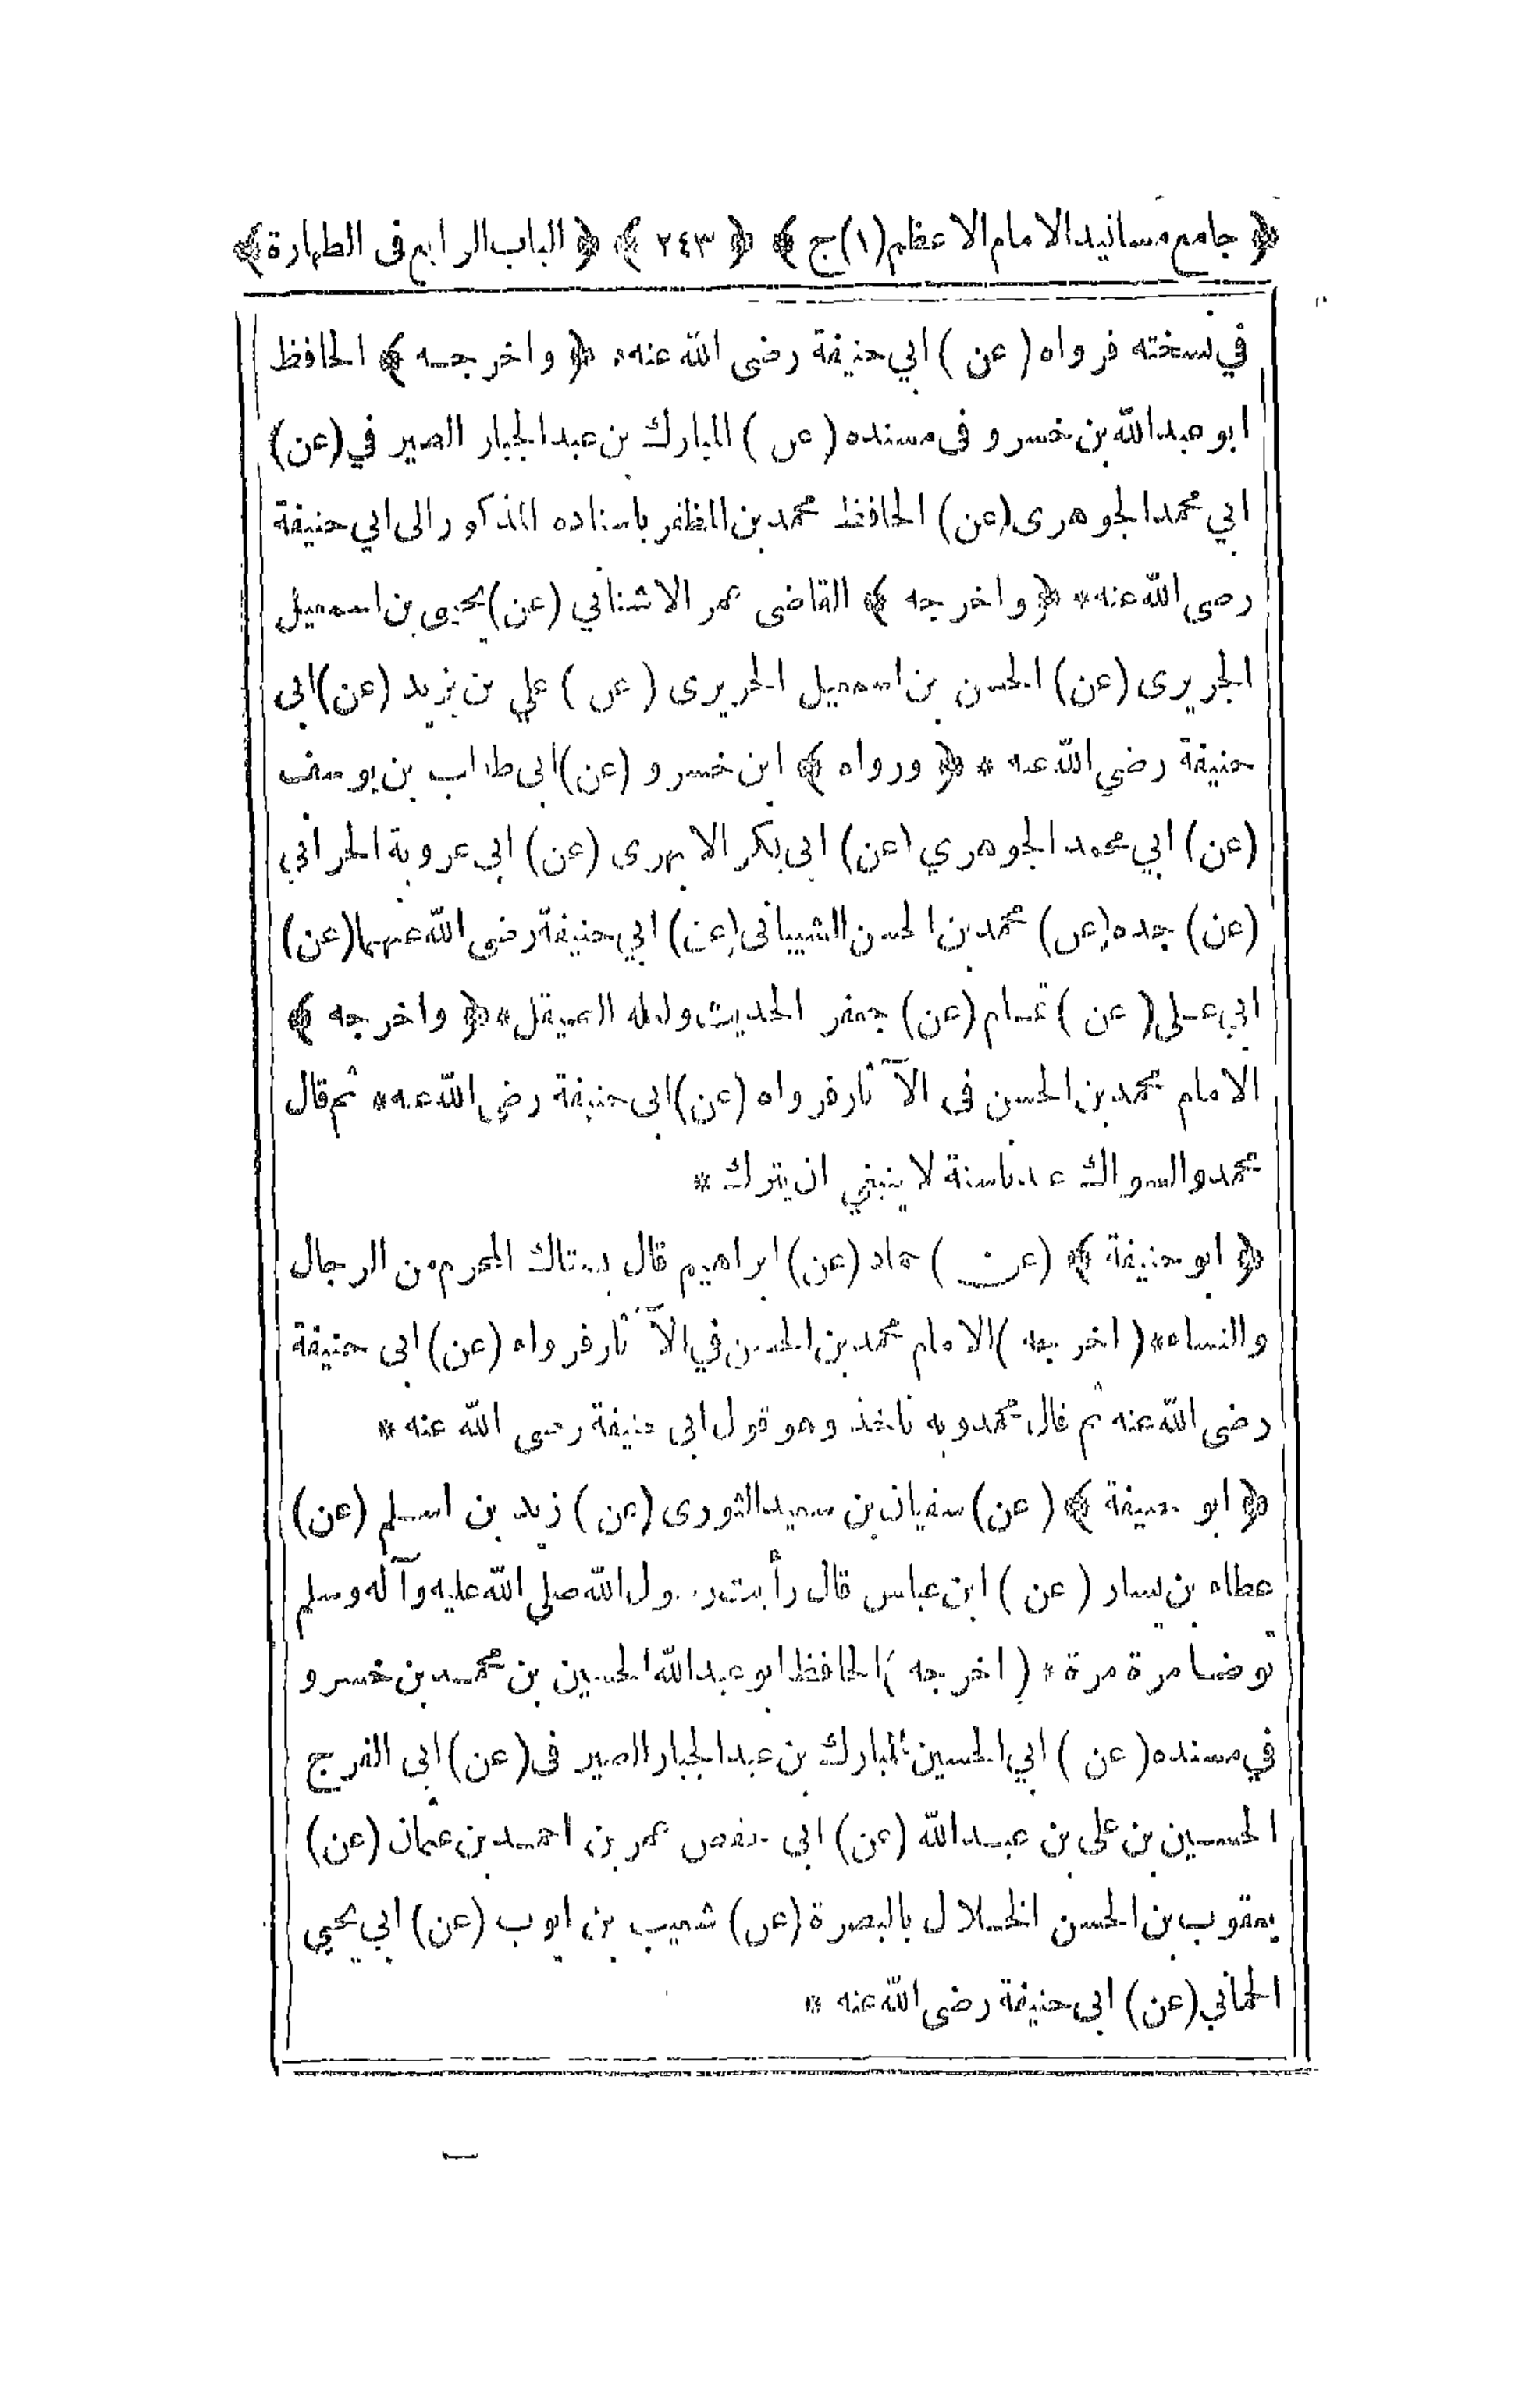 ﴿ جامع مسانيد الامام الاعظم (١) ج ﴾ ﴿ ٢٤٣ ﴾ ﴿ الباب الرابع فى الطهارة ﴾
في نسخته فرواه ( عن ) ابي حنيفة رضى الله عنه * ﴿ واخرجه ﴾ الحافظ
ابو عبد الله بن خسرو فى مسنده ( عن ) المبارك بن عبد الجبار الصيرفي (عن)
ابي محمد الجوهرى (عن) الحافظ محمد بن المظفر باسناده المذكور الى ابي حنيفة
رضى الله عنه * ﴿ واخرجه ﴾ القاضى عمر الاشناني (عن) يحيى بن اسمعيل
الجريرى (عن) الحسن بن اسمعيل الجريرى ( عن ) علي بن يزيد (عن) ابى
حنيفة رضي الله عنه * ﴿ ورواه ﴾ ابن خسرو (عن) ابى طالب بن يوسف
(عن) ابي محمد الجوهري (عن) ابى بكر الابهرى (عن) ابى عروبة الحراني
(عن) جده (عن) محمد بن الحسن الشيبانى (عن) ابي حنيفة رضى الله عنهما (عن)
ابي علي ( عن ) تمام (عن) جعفر الحديث ولعله الصيقل * ﴿ واخرجه ﴾
الامام محمد بن الحسن فى الآثار فرواه (عن) ابى حنيفة رضي الله عنه * ثم قال
محمد والسواك عندنا سنة لا ينبغي ان يترك *
﴿ ابو حنيفة ﴾ (عن) حماد (عن) ابراهيم قال يستاك المحرم من الرجال
والنساء * ( اخرجه ) الامام محمد بن الحسن في الآثار فرواه (عن) ابى حنيفة
رضى الله عنه ثم قال محمد وبه ناخذ وهو قول ابى حنيفة رضى الله عنه *
﴿ ابو حنيفة ﴾ ( عن ) سفيان بن سعيد الثورى (عن ) زيد بن اسلم (عن)
عطاء بن يسار ( عن ) ابن عباس قال رأيت رسول الله صلى الله عليه وآله وسلم
توضأ مرة مرة * ( اخرجه ) الحافظ ابو عبد الله الحسين بن محمد بن خسرو
في مسنده ( عن ) ابي الحسين المبارك بن عبد الجبار الصيرفى (عن) ابى الفرج
الحسين بن على بن عبد الله (عن) ابي حفص عمر بن احمد بن عثمان (عن)
يعقوب بن الحسن الخلال بالبصرة (عن) شعيب بن ايوب (عن) ابي يحيي
الحماني (عن) ابى حنيفة رضى الله عنه *